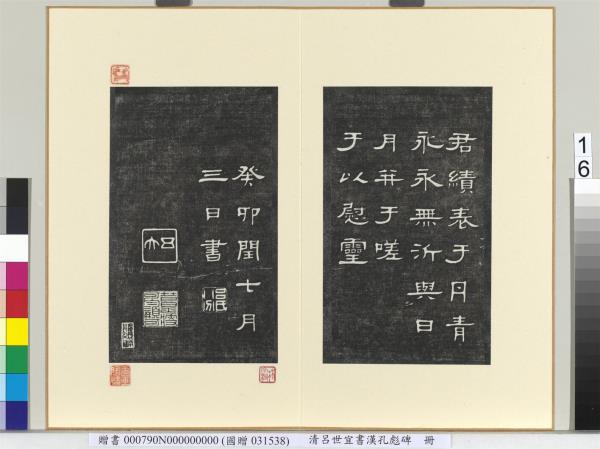 君績表于丹青
永永無沂與日
月并于嗟
于以慰靈
癸卯閏七月
三日書
16
贈書 000790N000000000 (國贈 031538) 清呂世宜書漢孔彪碑 冊